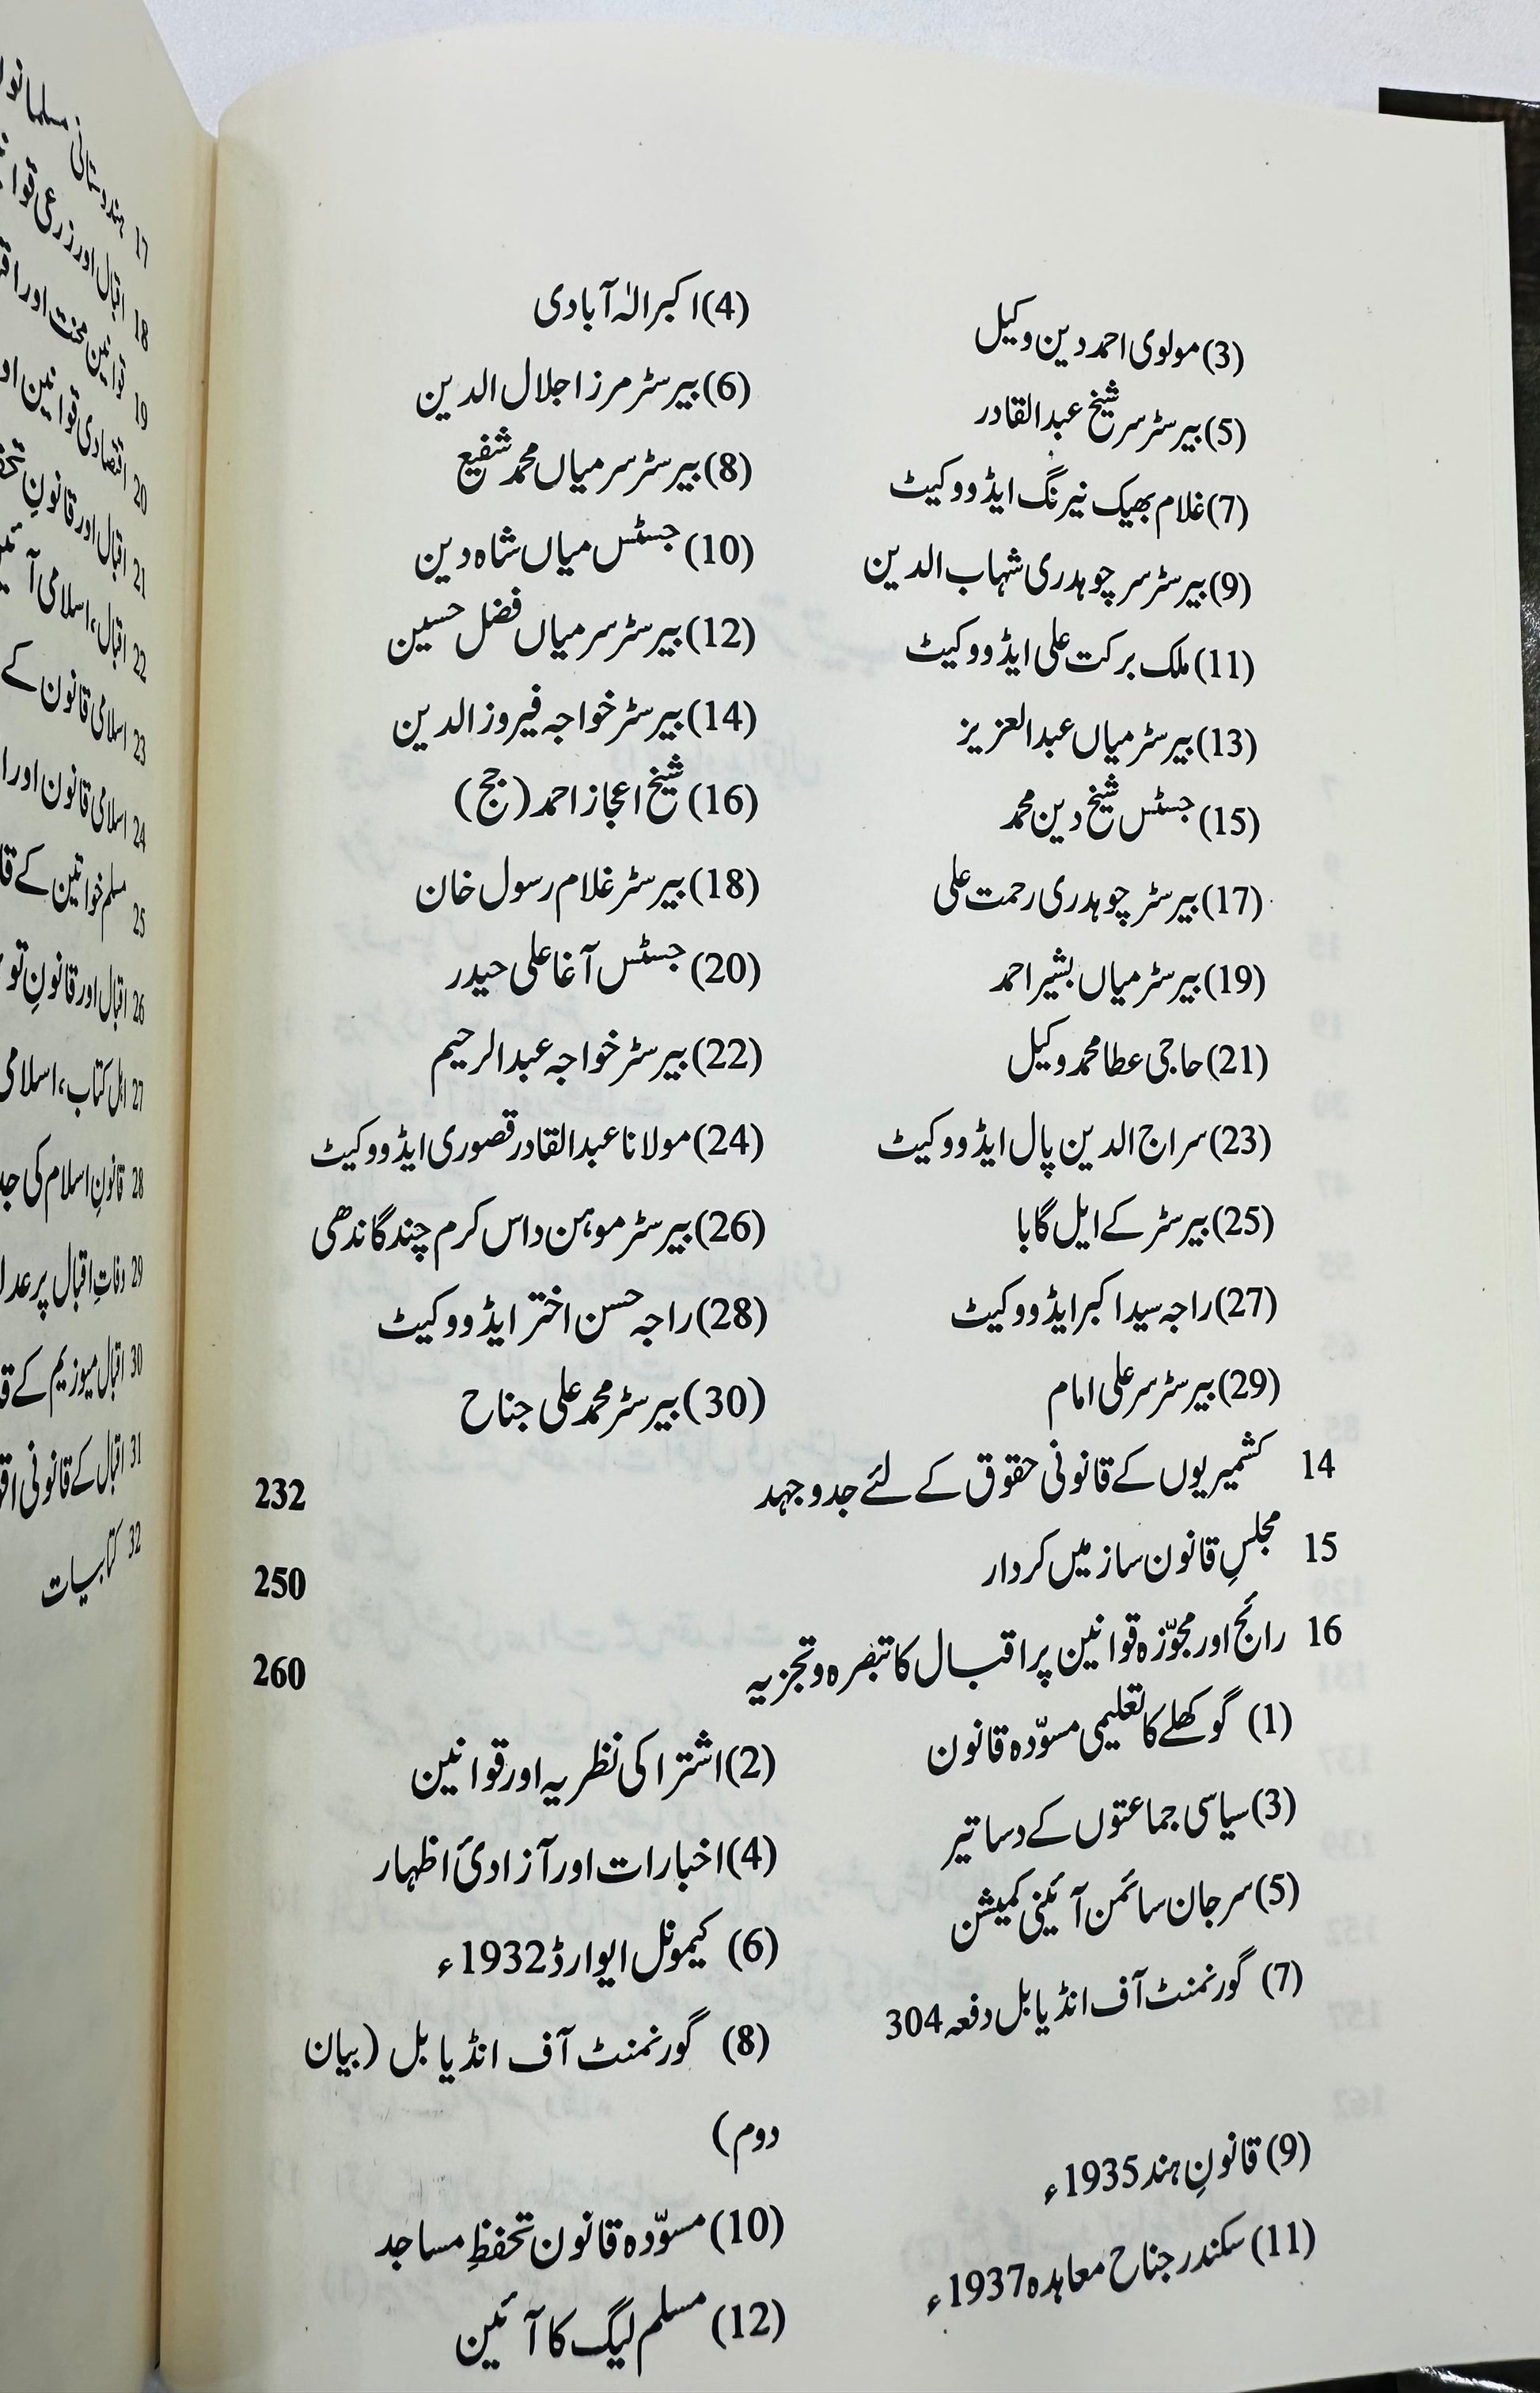 (3) مولوی احمد دین وکیل (4) اکبر الہٰ آبادی
(5) بیرسٹر سر شیخ عبدالقادر (6) بیرسٹر مرزا جلال الدین
(7) غلام بھیک نیرنگ ایڈووکیٹ (8) بیرسٹر سر میاں محمد شفیع
(9) بیرسٹر سر چوہدری شہاب الدین (10) جسٹس میاں شاہ دین
(11) ملک برکت علی ایڈووکیٹ (12) بیرسٹر سر میاں فضل حسین
(13) بیرسٹر میاں عبدالعزیز (14) بیرسٹر خواجہ فیروز الدین
(15) جسٹس شیخ دین محمد (16) شیخ اعجاز احمد (جج)
(17) بیرسٹر چوہدری رحمت علی (18) بیرسٹر غلام رسول خان
(19) بیرسٹر میاں بشیر احمد (20) جسٹس آغا علی حیدر
(21) حاجی عطا محمد وکیل (22) بیرسٹر خواجہ عبدالرحیم
(23) سراج الدین پال ایڈووکیٹ (24) مولانا عبدالقادر قصوری ایڈووکیٹ
(25) بیرسٹر کے ایل گابا (26) بیرسٹر موہن داس کرم چند گاندھی
(27) راجہ سید اکبر ایڈووکیٹ (28) راجہ حسن اختر ایڈووکیٹ
(29) بیرسٹر سر علی امام (30) بیرسٹر محمد علی جناح
14 کشمیریوں کے قانونی حقوق کے لئے جدوجہد 232
15 مجلسِ قانون ساز میں کردار 250
16 رائج اور مجوّزہ قوانین پر اقبال کا تبصرہ و تجزیہ 260
(1) گوکھلے کا تعلیمی مسوّدہ قانون (2) اشتراکی نظریہ اور قوانین
(3) سیاسی جماعتوں کے دساتیر (4) اخبارات اور آزادیٔ اظہار
(5) سر جان سائمن آئینی کمیشن (6) کیمونل ایوارڈ 1932ء
(7) گورنمنٹ آف انڈیا بل دفعہ 304 (8) گورنمنٹ آف انڈیا بل (بیان
دوم)
(9) قانونِ ہند 1935ء (10) مسوّدہ قانون تحفظِ مساجد
(11) سکندر جناح معاہدہ 1937ء (12) مسلم لیگ کا آئین
17 ہندوستانی
18 اقبال اور زرعی
19 قوانین محنت اور
20 اقتصادی قوانین
21 اقبال اور قانونِ
22 اقبال، اسلامی
23 اسلامی قانون کے
24 اسلامی قانون اور
25 مسلم خواتین کے
26 اقبال اور قانونِ
27 اہل کتاب، اسلامی
28 قانونِ اسلام کی
29 وفاتِ اقبال پر
30 اقبال میوزیم کے
31 اقبال کے قانونی
32 کتابیات